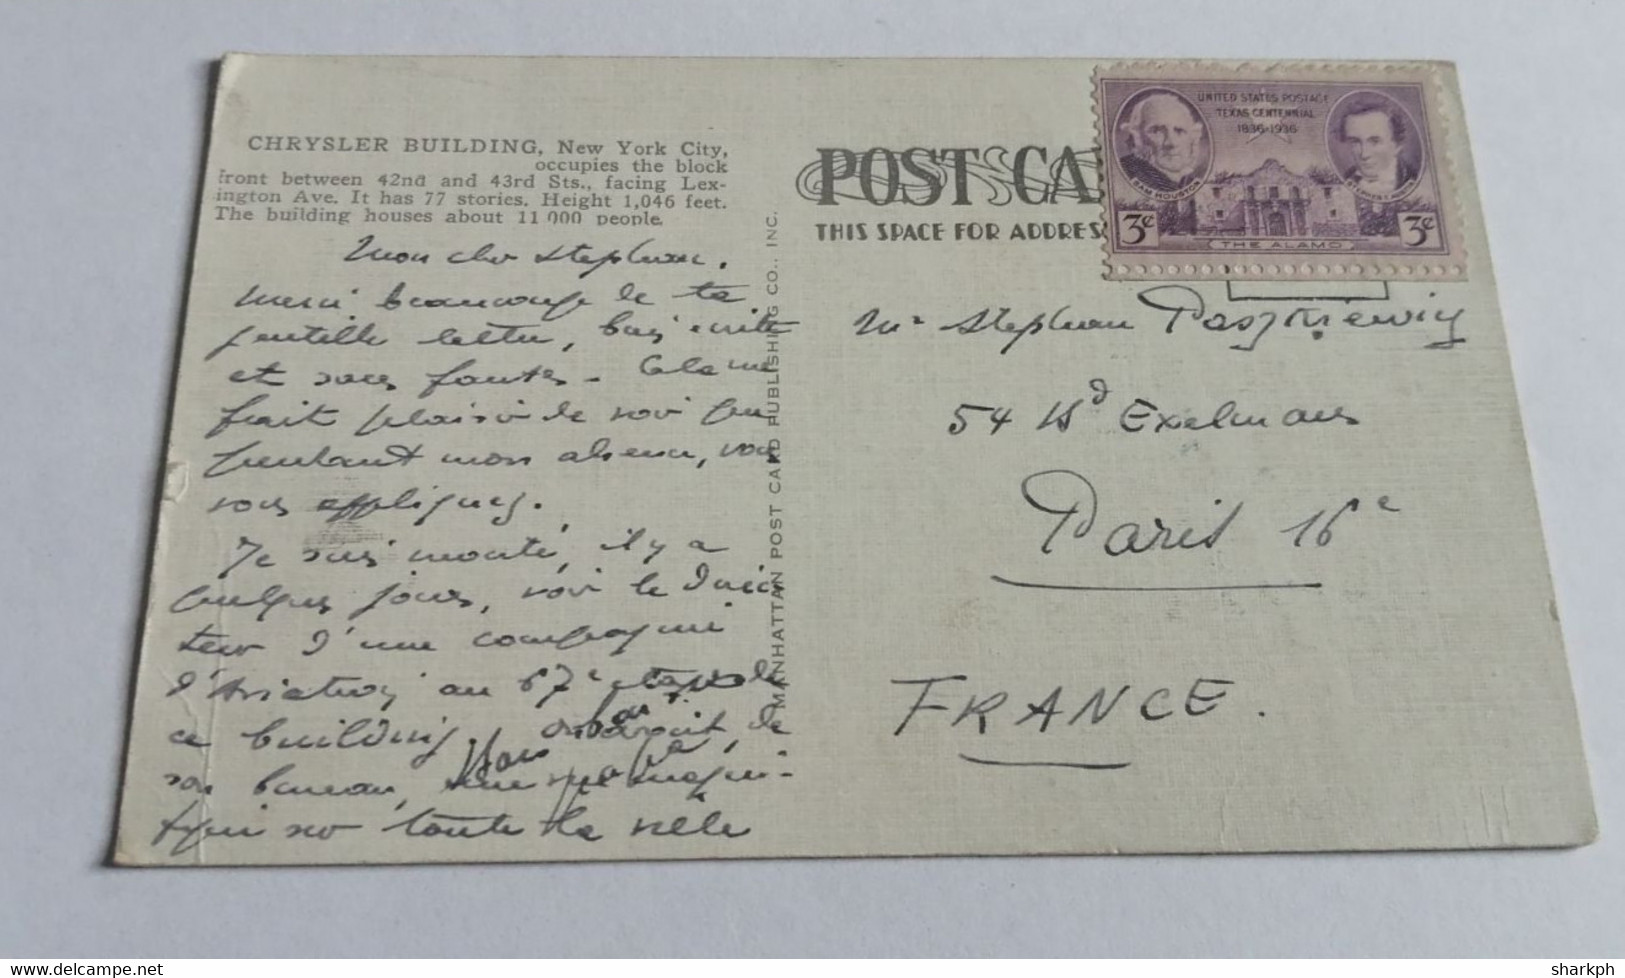 CHRYSLER BUILDING, New York City,
occupies the block
front between 42nd and 43rd Sts., facing Lex-
ington Ave. It has 77 stories. Height 1,046 feet.
The building houses about 11 000 people.
Mon cher Stephan.
Merci beaucoup de ta
gentille lettre, bien écrite
et sans fautes. Cela me
fait plaisir de voir que
pendant mon absence, vous
vous appliquez.
Je suis monté, il y a
quelques jours, voir le direc
teur d'une compagnie
d'Aviation au 67e étage de
ce building. On voyait, de
son bureau, une magni-
toute la ville
MANHATTAN POST CARD PUBLISHING CO., INC.
POST CA
THIS SPACE FOR ADDRES
UNITED STATES POSTAGE
TEXAS CENTENNIAL
1836-1936
SAM HOUSTON
STEPHEN F. AUSTIN
3¢
THE ALAMO
3¢
Mr Stephan Paszkiewicz
54 Bd Exelmans
Paris 16e
FRANCE.
Delcampe.net
sharkph